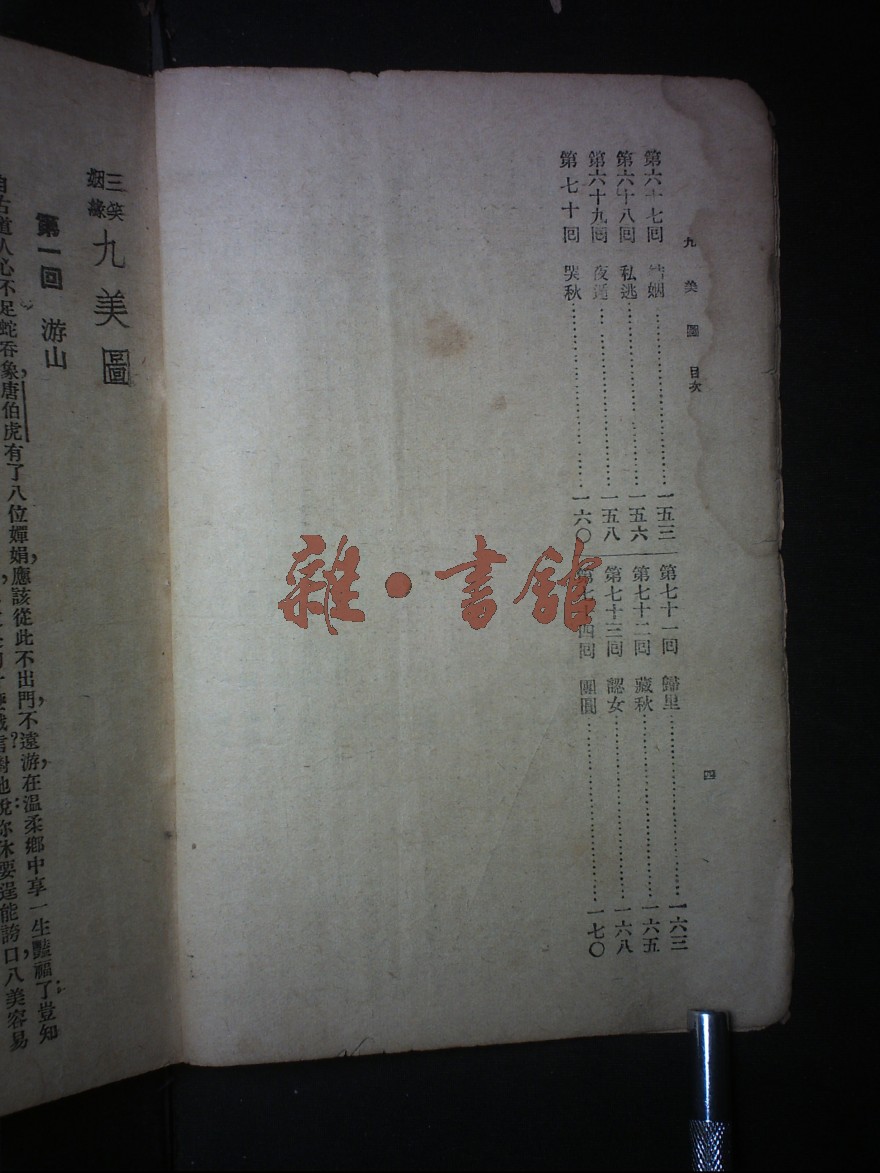 九美圖 目次
四
第六十七回 結姻 一五三
第六十八回 私逃 一五六
第六十九回 夜遁 一五八
第七十回 哭秋 一六〇
第七十一回 歸里 一六三
第七十二回 藏秋 一六五
第七十三回 認女 一六八
第七十四回 團圓 一七〇
雜·書館
三笑姻緣 九美圖
第一回 游山
自古道人心不足蛇吞象，唐伯虎有了八位嬋娟，應該從此不出門，不遠游，在温柔鄉中享一生豔福了；豈知
對他說：你休要逞能誇口，八美容易